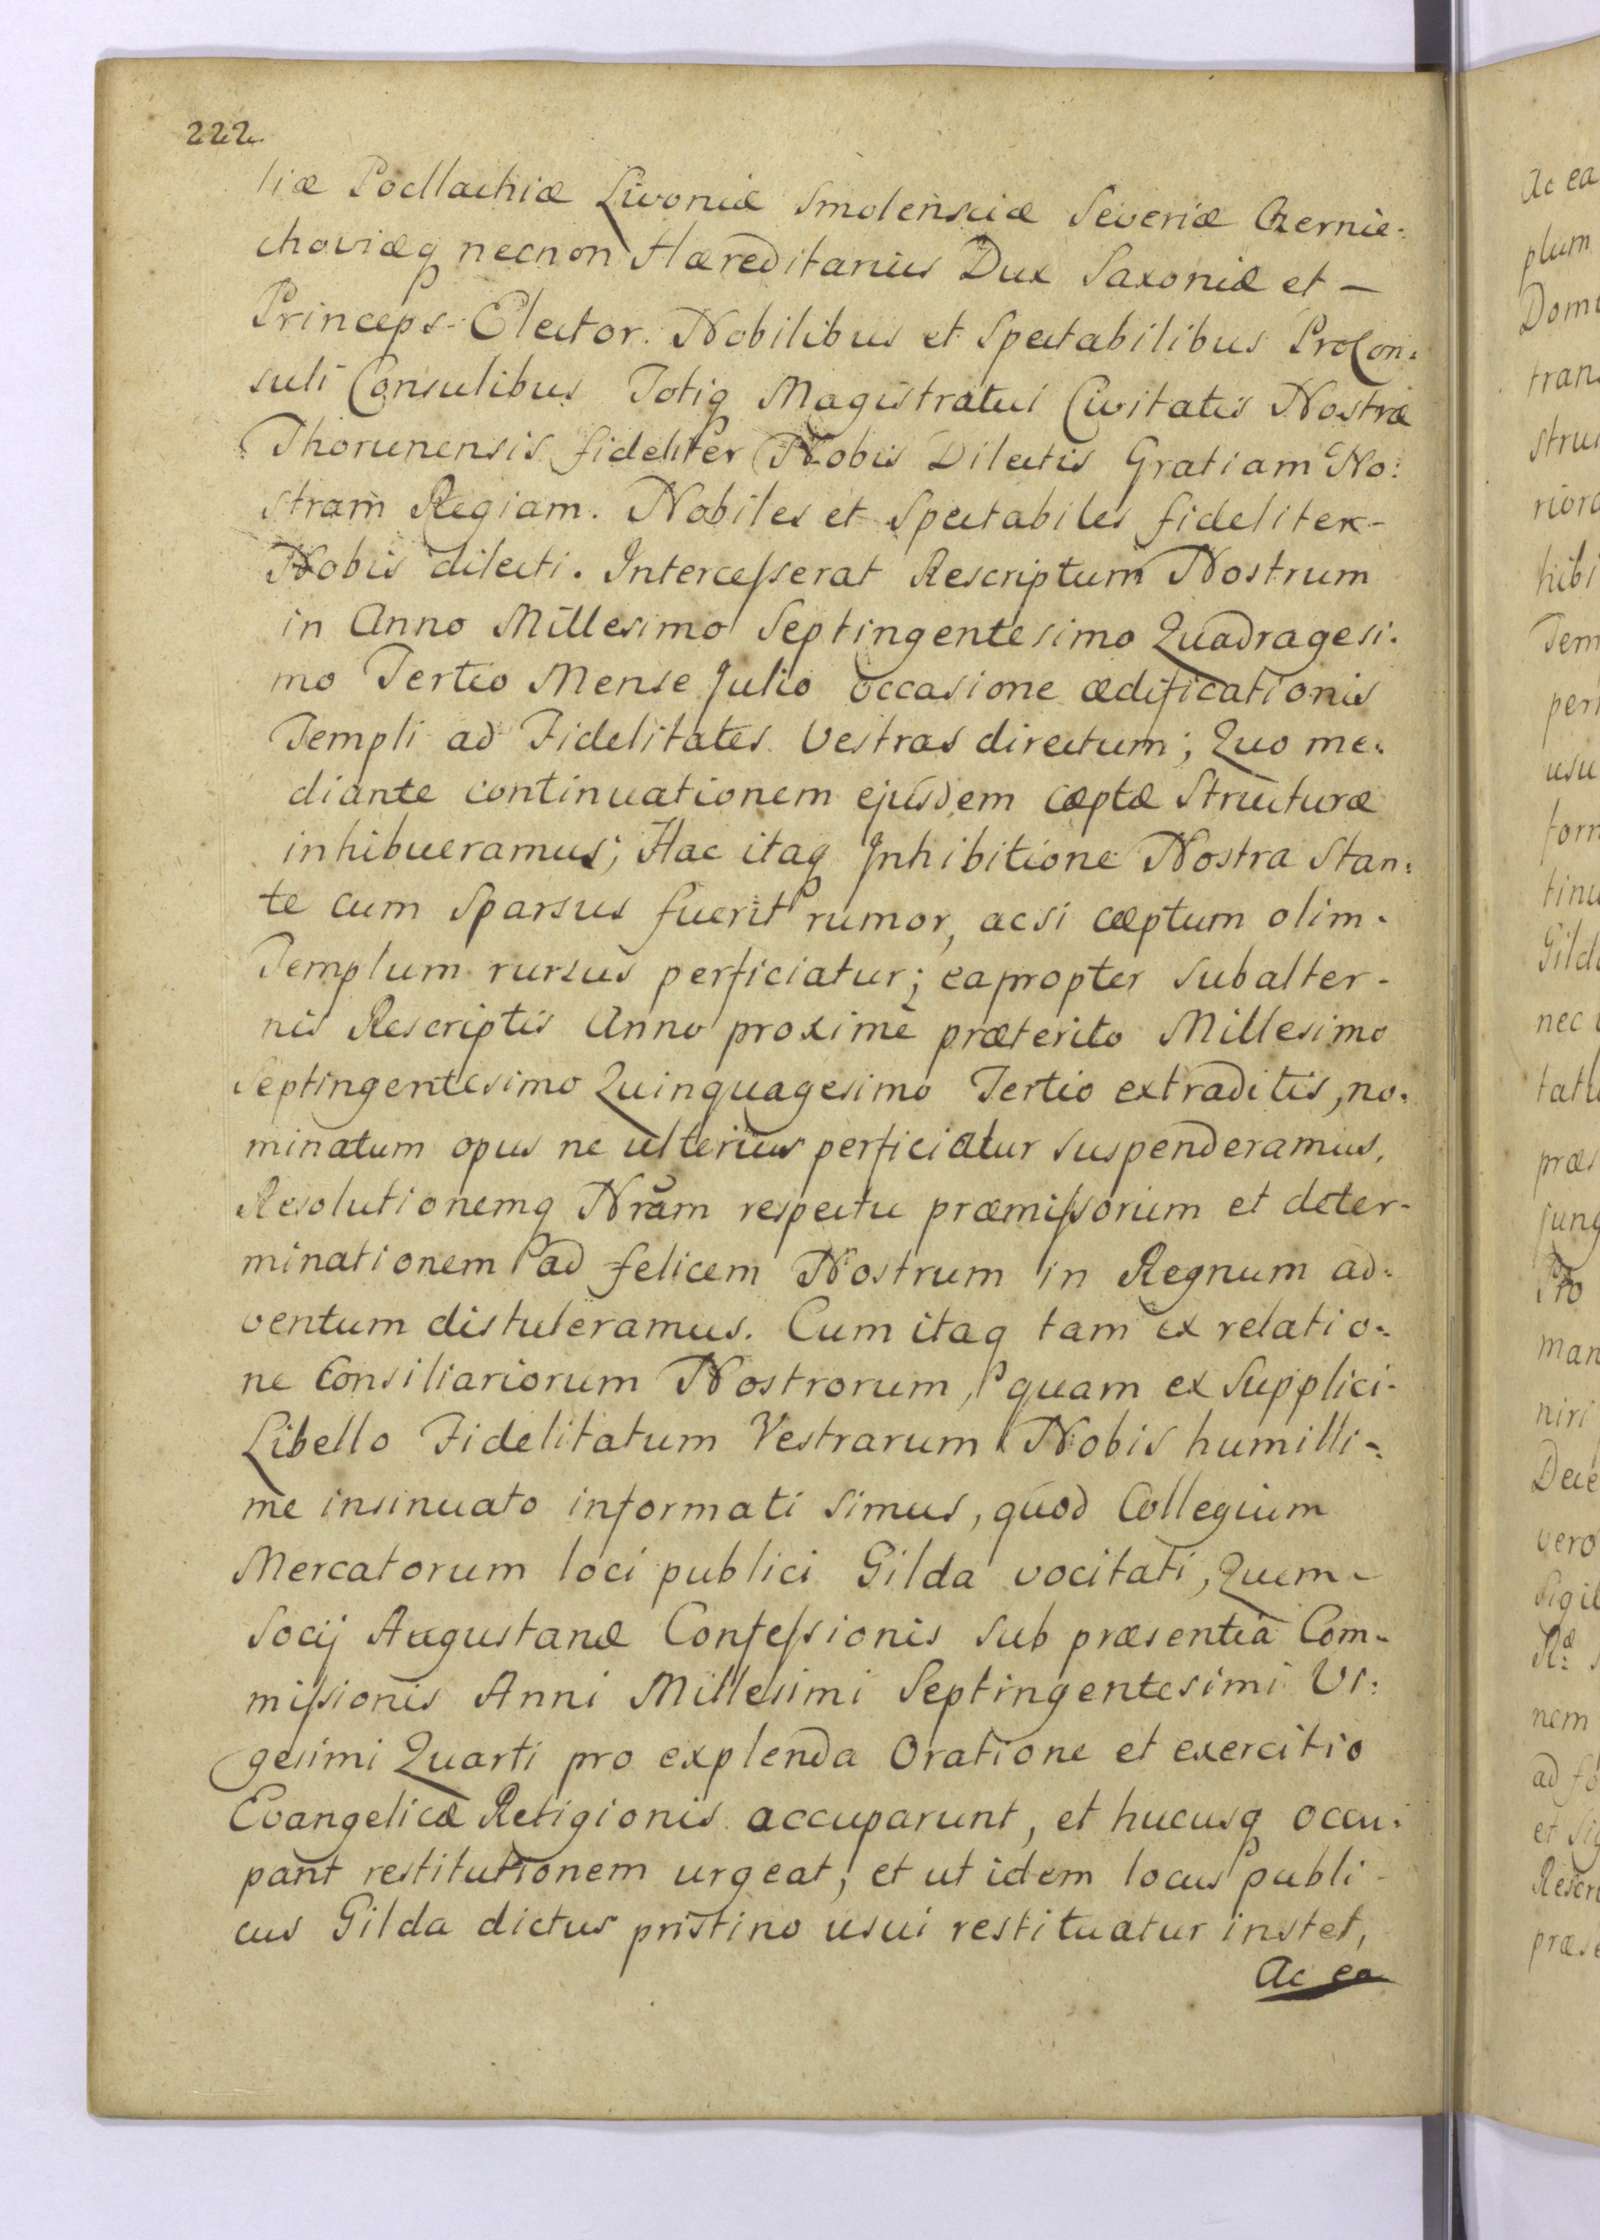 222.
liæ Podlachiæ Livoniæ Smolensciæ Severiæ Czernie-
choviæq necnon Hæreditarius Dux Saxoniæ et –
Princeps-Elector. Nobilibus et Spectabilibus ProCon-
suli Consulibus Totiq Magistratui Civitatis Nostræ
Thorunensis fideliter Nobis Dilectis Gratiam No-
stram Regiam. Nobiles et Spectabiles fideliter-
Nobis dilecti. Intercesserat Rescriptum Nostrum
in Anno Millesimo Septingentesimo Quadragesi-
mo Tertio Mense Julio occasione ædificationis
Templi ad Fidelitates Vestras directum; Quo me-
diante continuationem ejusdem cæptæ Structuræ
inhibueramus; Hac itaq Inhibitione Nostra Stan-
te cum Sparsus fuerit rumor, acsi cæptum olim-
Templum rursus perficiatur; eapropter Subalter-
nis Rescriptis Anno proximè præterito Millesimo
Septingentesimo Quinquagesimo Tertio extraditis, no-
minatum opus ne ulterius perficiatur suspenderamus,
Resolutionemq Nrãm respectu præmissorum et deter-
minationem ad felicem Nostrum in Regnum ad-
ventum distuleramus. Cum itaq tam ex relatio-
ne Consiliariorum Nostrorum, quam ex Supplici-
Libello Fidelitatum Vestrarum Nobis humilli-
me insinuato informati Simus, quod Collegium
Mercatorum loci publici Gilda vocitati, Quem-
Socij Augustanæ Confessionis sub præsentia Com-
missionis Anni Millesimi Septingentesimi Vi-
gesimi Quarti pro explenda Oratione et exercitio
Evangelicæ Religionis accuparunt, et hucusq occu-
pant restitutionem urgeat, et ut idem locus publi-
cus Gilda dictus pristino usui restituatur instet,
Ac ea
Ac ea
plum
Domi
tran
stru
riora
hibi
Tem
per
usu
for
tinu
Gild
nec
tat
præs
jung
Pro
man
niri
Dece
vero
Sigil
nem
ad fo
et Sig
Rescr
præse